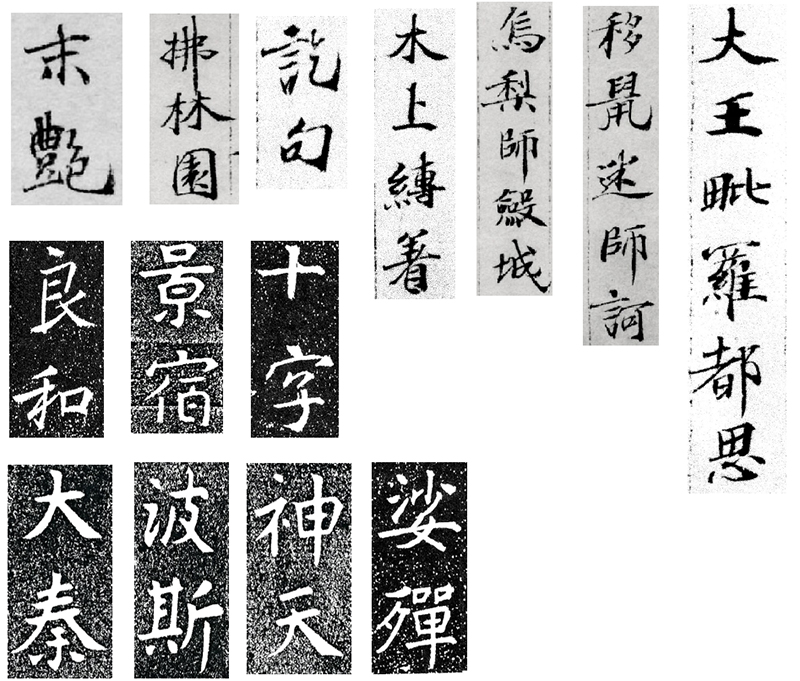 大王毗羅都思
移鼠迷師訶
烏梨師斂城
木上縛着
訖句
拂林園
末艶
十字
景宿
良和
娑殫
神天
波斯
大秦